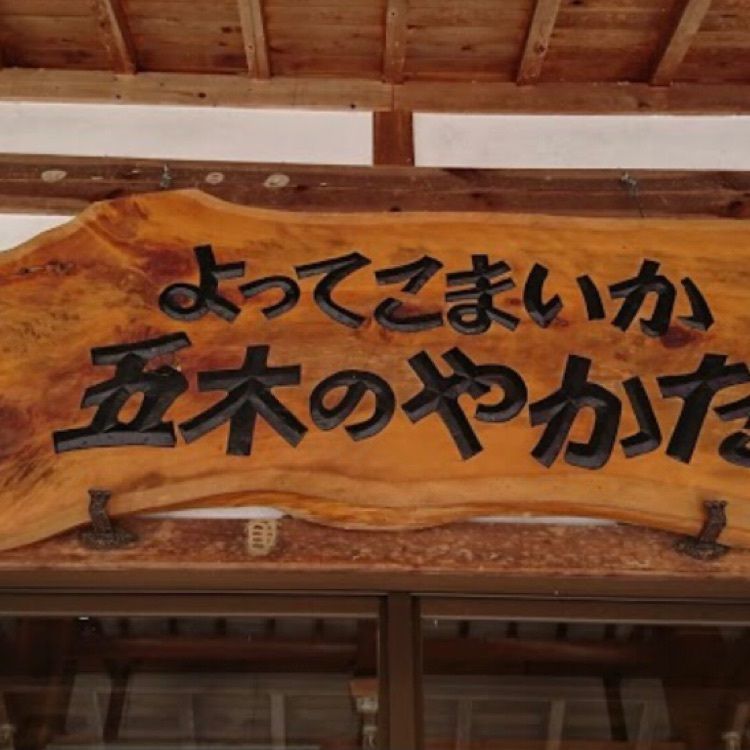 よってこまいか
五木のやかた